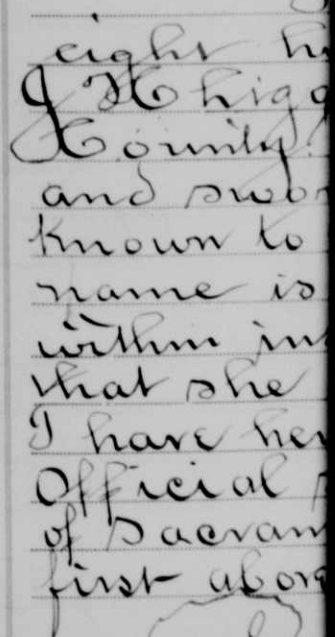 eight h
J H Higg
County
and swor
known to
name is
within in
that she
I have her
Official s
of Sacram
first above